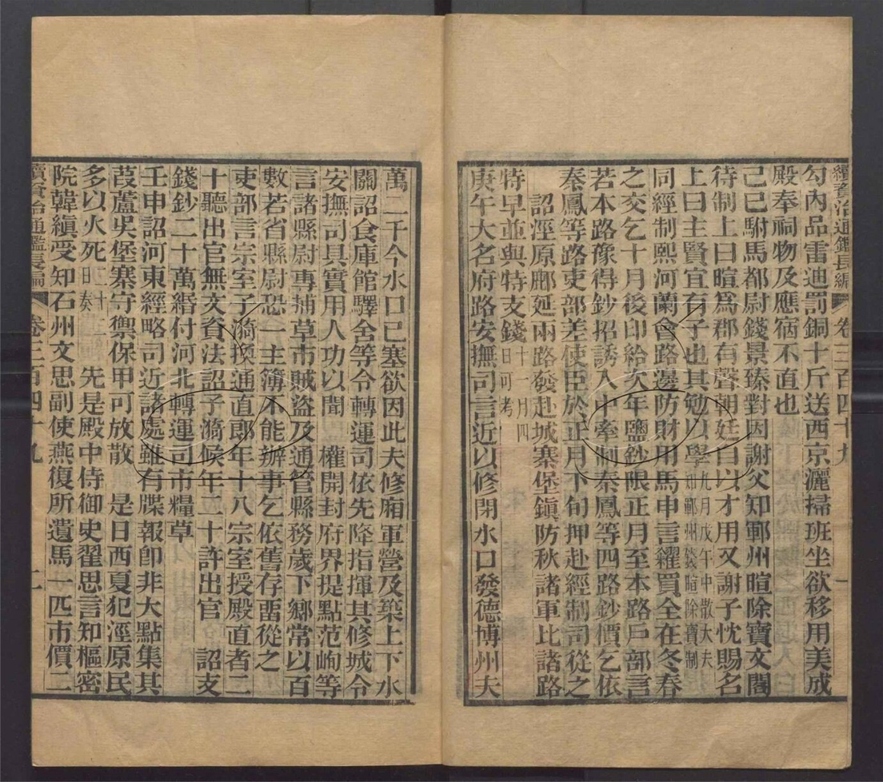 續資治通鑑長編 卷三百四十九 一
勾內品雷迪罰銅十斤送西京灑掃班坐欲移用美成
殿奉祠物及應宿不直也
己巳駙馬都尉錢景臻對因謝父知鄆州暄除寶文閣
待制上曰暄爲郡有聲朝廷自以才用又謝子忱賜名
上曰主賢宜有子也其勉以學九月戊午中散大夫知鄆州錢暄除寶制
同經制熙河蘭會路邊防財用馬申言糴買全在冬春
之交乞十月後印給次年鹽鈔限正月至本路戶部言
若本路豫得鈔招誘入中牽制秦鳳等四路鈔價乞依
秦鳳等路吏部差使臣於正月下旬押赴經制司從之
詔涇原鄜延兩路發赴城寨堡鎮防秋諸軍比諸路
特早並與特支錢十一月四日可考
庚午大名府路安撫司言近以修閉水口發德博州夫
萬二千今水口已塞欲因此夫修廂軍營及築上下水
關詔倉庫館驛舍等令轉運司依先降指揮其修城令
安撫司具實用人功以聞 權開封府界提點范峋等
言諸縣尉專捕草市賊盜及通管縣務歲下鄉常以百
數若省縣尉恐一主簿不能辦事乞依舊存畱從之
吏部言宗室子漪換通直郎年十八宗室授殿直者二
十聽出官無文資法詔子漪候年二十許出官 詔支
錢鈔二十萬緡付河北轉運司市糧草
壬申詔河東經略司近諸處雖有牒報卽非大點集其
葭蘆吳堡寨守禦保甲可放散 是日西夏犯涇原民
多以火死二十日奏 先是殿中侍御史翟思言知樞密
院韓縝受知石州文思副使燕復所遺馬一匹市價二
續資治通鑑長編 卷三百四十九 二